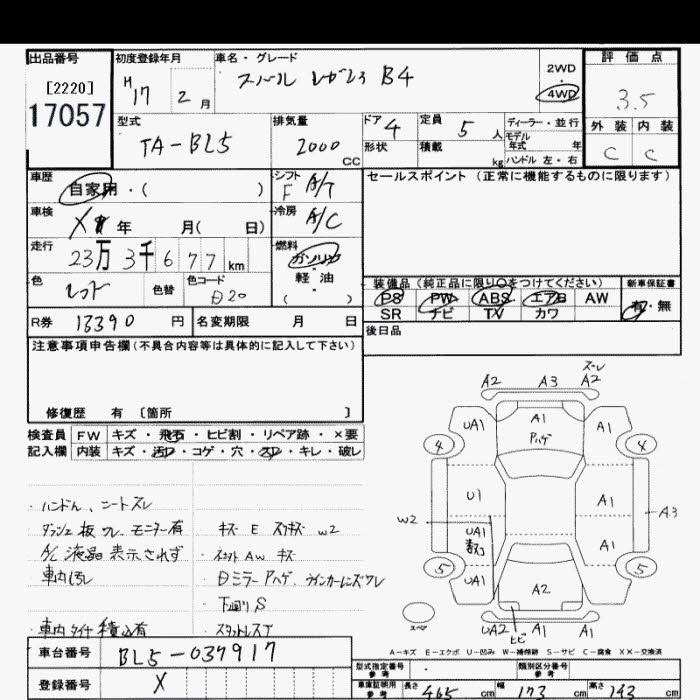 出品番号
[2220]
17057
初度登録年月
H17 2月
車名・グレード
スバル レガシィ B4
2WD
4WD
評価点
3.5
外装 内装
C C
型式
TA-BL5
排気量
2000 CC
ドア 4
形状
定員 5 人
積載 kg
ディーラー・並行
モデル
年式 年
ハンドル 左・右
車歴
自家用・( )
シフト
F A/T
車検
X 年 月( 日)
冷房
A/C
走行
23万 3千 677 km
燃料
ガソリン
軽油
( )
色
レッド
色替
色コード
D20
R券 13390 円
名変期限 月 日
セールスポイント (正常に機能するものに限ります)
装備品 (純正品に限り○をつけてください)
PS PW ABS エアB AW
SR ナビ TV カワ
新車保証書
有・無
後日品
注意事項申告欄(不具合内容等は具体的に記入して下さい)
修復歴 有 [箇所 ]
検査員 FW キズ・飛石・ヒビ割・リペア跡・×要
記入欄 内装 キズ・汚レ・コゲ・穴・スレ・キレ・破レ
・ハンドル、シートスレ
ダッシュ板ワレ、モニター有
A/C 液晶表示されず
車内
車内タイヤ積込有
キズ E スリキズ W2
・ AW キズ
・Dミラーアハゲ、ウインカーレンズワレ
・下回りS
・スタッドレスT
A2 A3 A2
スレ
UA1 A1 A1
アハゲ
4 4
U1 A1
A3
W2
UA1 A1
5 5
UA1
A2
スペア
UA2 A1 A1
ヒビ
A-キズ E-エクボ U-凹み W-補修跡 S-サビ C-腐食 XX-交換済
車台番号
BL5-037917
登録番号
X
型式指定番号
参考
類別区分番号
参考
車庫証明用
参考
長さ 465 cm 幅 173 cm 高さ 143 cm